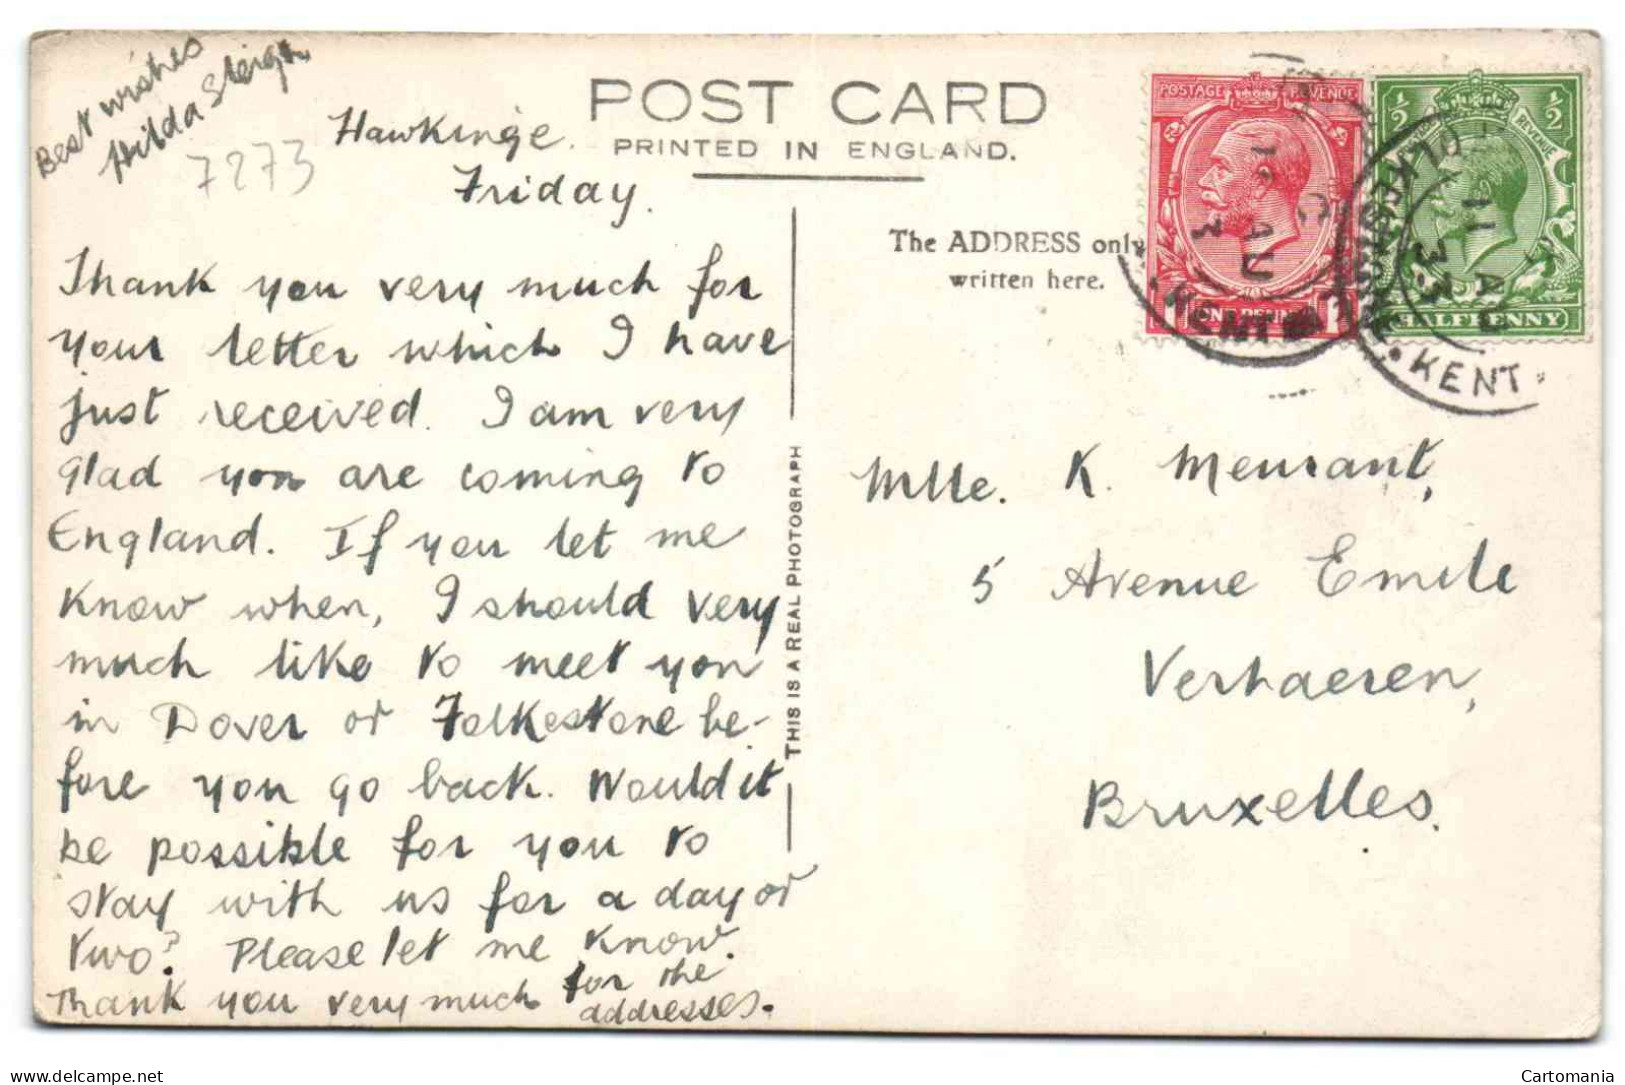 Best wishes
Hilda Sleigh
7273
Hawkinge.
Friday.
Thank you very much for
your letter which I have
just received. I am very
glad you are coming to
England. If you let me
know when, I should very
much like to meet you
in Dover or Folkestone be-
fore you go back. Would it
be possible for you to
stay with us for a day or
two? Please let me know.
Thank you very much for the
addresses.
POST CARD
PRINTED IN ENGLAND.
The ADDRESS only
written here.
THIS IS A REAL PHOTOGRAPH
POSTAGE REVENUE
ONE PENNY
1/2 1/2
REVENUE
HALFPENNY
FOLKESTONE
11 AU
33
KENT
AU
KENT
Mlle. K. Meurant,
5 Avenue Emile
Verhaeren,
Bruxelles.
delcampe.net
Cartomania